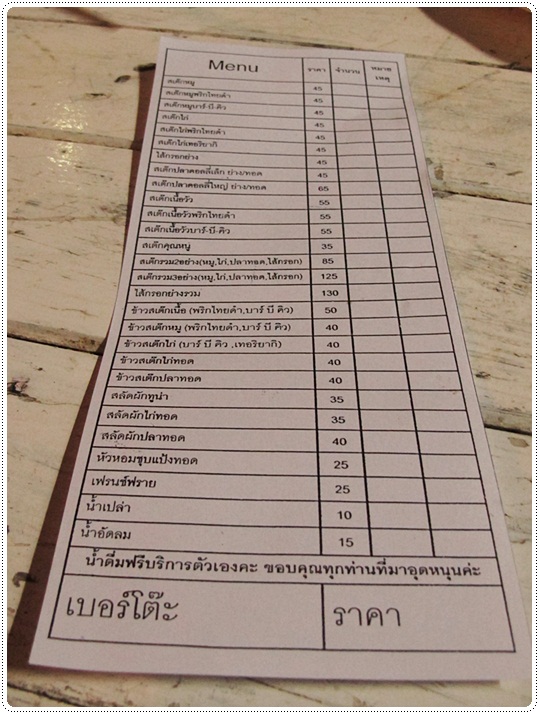 Menu ราคา จำนวน หมายเหตุ
สเต๊กหมู 45
สเต๊กหมูพริกไทยดำ 45
สเต๊กหมูบาร์-บี-คิว 45
สเต๊กไก่ 45
สเต๊กไก่พริกไทยดำ 45
สเต๊กไก่เทอริยากิ 45
ไส้กรอกย่าง 45
สเต๊กปลาดอลลี่เล็ก ย่าง/ทอด 45
สเต๊กปลาดอลลี่ใหญ่ ย่าง/ทอด 65
สเต๊กเนื้อวัว 55
สเต๊กเนื้อวัวพริกไทยดำ 55
สเต๊กเนื้อวัวบาร์-บี-คิว 55
สเต๊กคุณหนู 35
สเต๊กรวม2อย่าง(หมู,ไก่,ปลาทอด,ไส้กรอก) 85
สเต๊กรวม3อย่าง(หมู,ไก่,ปลาทอด,ไส้กรอก) 125
ไส้กรอกย่างรวม 130
ข้าวสเต๊กเนื้อ (พริกไทยดำ,บาร์ บี คิว) 50
ข้าวสเต๊กหมู (พริกไทยดำ,บาร์ บี คิว) 40
ข้าวสเต๊กไก่ (บาร์ บี คิว ,เทอริยากิ) 40
ข้าวสเต๊กไก่ทอด 40
ข้าวสเต๊กปลาทอด 40
สลัดผักทูน่า 35
สลัดผักไก่ทอด 35
สลัดผักปลาทอด 40
หัวหอมชุบแป้งทอด 25
เฟรนช์ฟราย 25
น้ำเปล่า 10
น้ำอัดลม 15
น้ำดื่มฟรีบริการตัวเองคะ ขอบคุณทุกท่านที่มาอุดหนุนค่ะ
เบอร์โต๊ะ ราคา